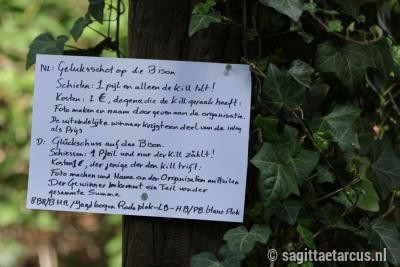 NL: Geluksschot op de Bison
Schieten: 1 pijl en alleen de kill telt!
Kosten: 1 €, degene die de kill geraakt heeft:
Foto maken en naam doorgeven aan de organisatie.
De uiteindelijke winnaar krijgt een deel van de inleg
als Prijs
D: Glückschuss auf das Bison.
Schiessen: 1 Pfeil und nur der Kill zählt!
Kosten 1€, der jenige der den Kill trift:
Foto machen und Name an der Organisation mitteilen
Der Gewinner bekommt ein Teil von der
gesamte Summe
BBR/BHR/Jagdbogen Rode plok-LB-HB/PB blauw Plok
© sagittaetarcus.nl